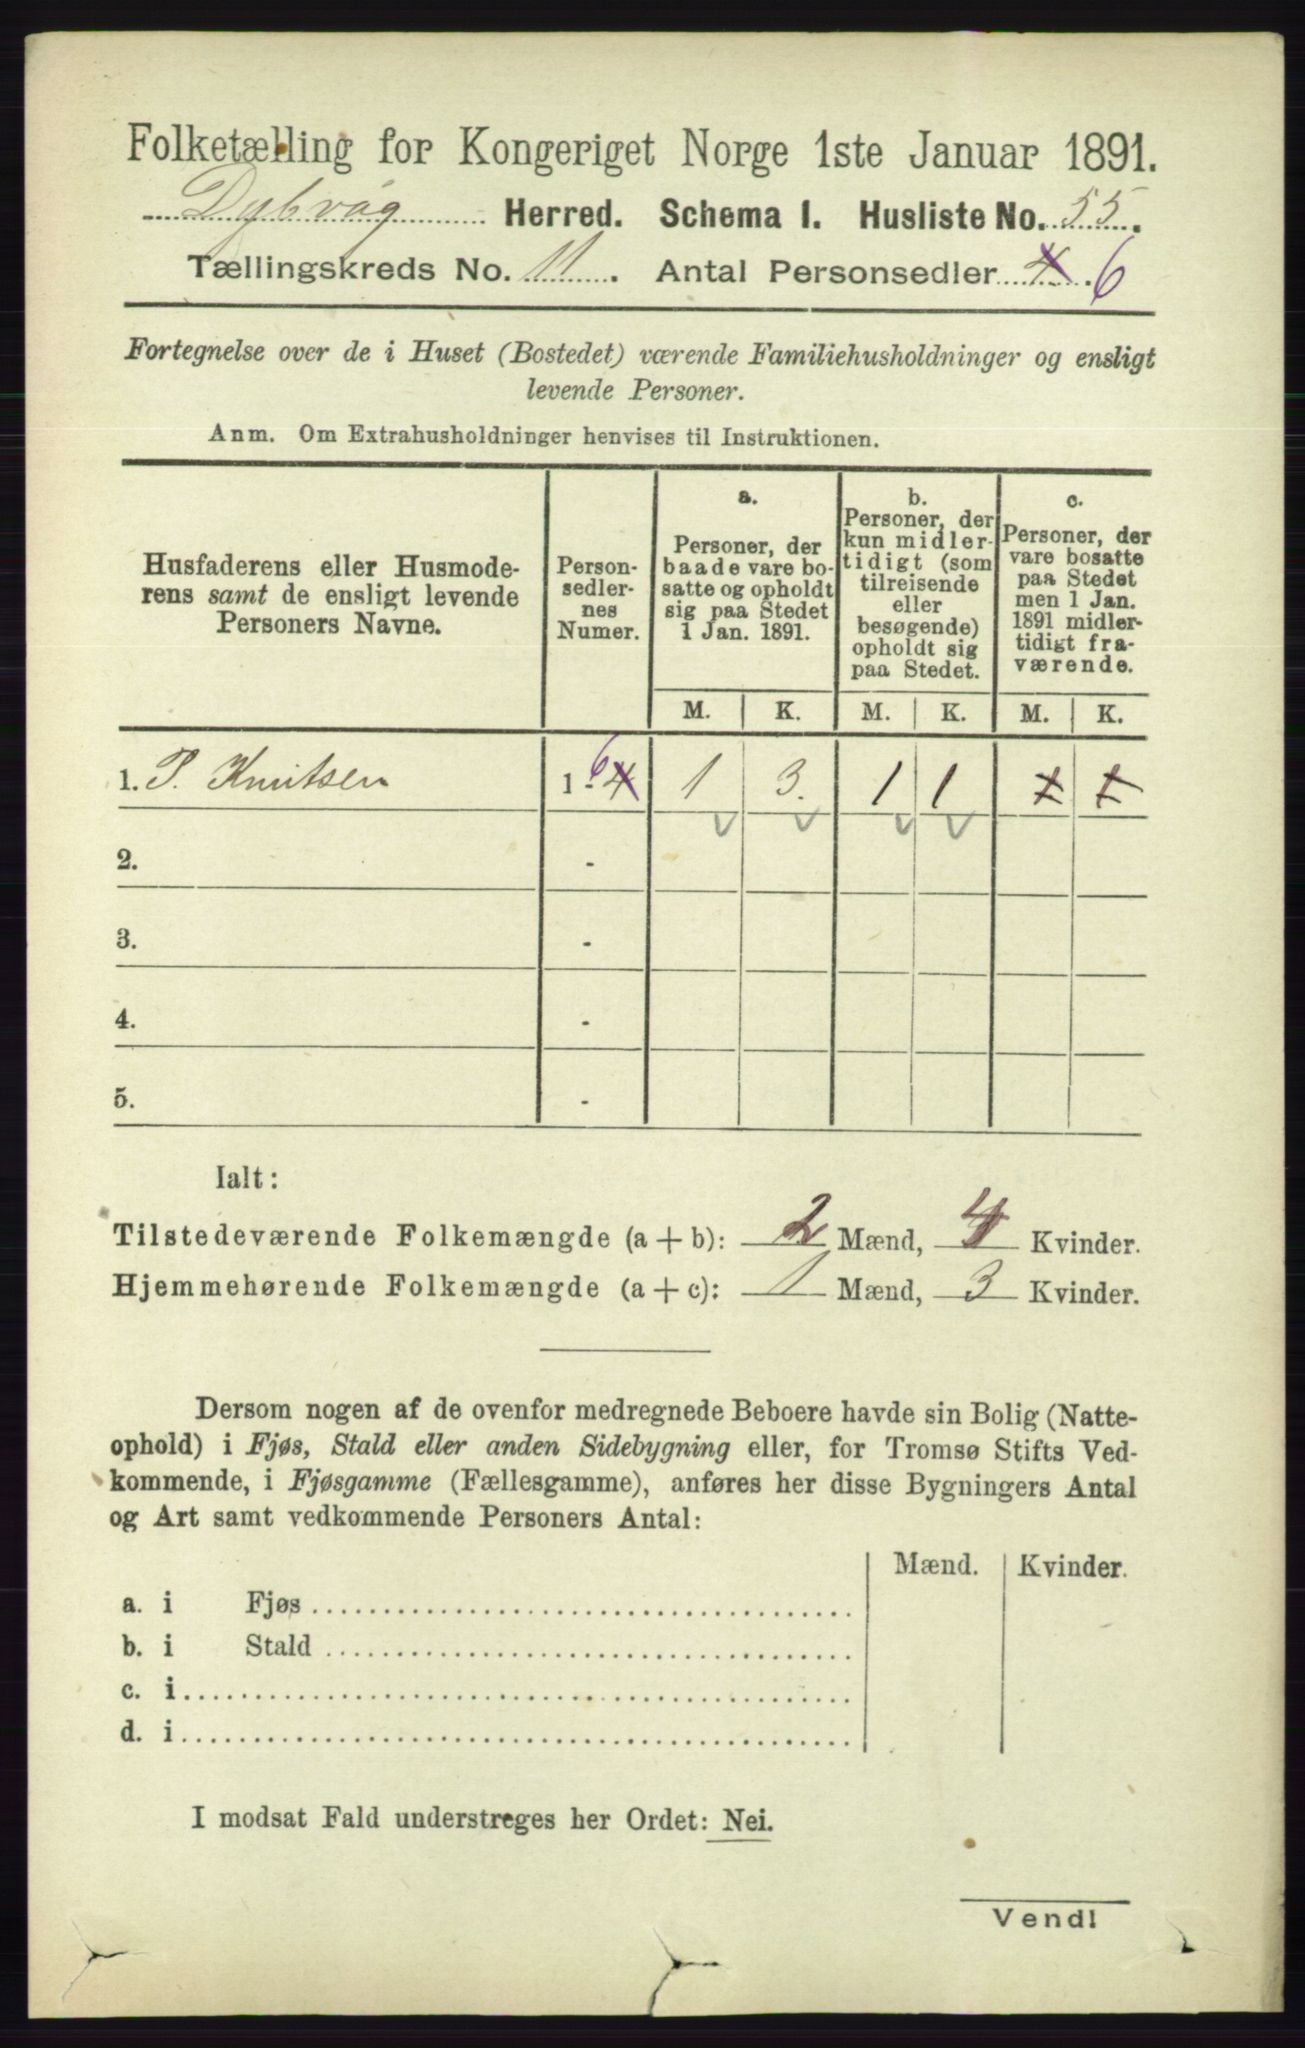 Folketælling for Kongeriget Norge 1ste Januar 1891.
Dybvåg Herred. Schema 1. Husliste No. 55.
Tællingskreds No. 11. Antal Personsedler 4. 6
Fortegnelse over de i Huset (Bostedet) værende Familiehusholdninger og ensligt
levende Personer.
Anm. Om Extrahusholdninger henvises til Instruktionen.
Husfaderens eller Husmode-
rens samt de ensligt levende
Personers Navne.
Person-
sedler-
nes
Numer.
a.
Personer, der
baade vare bo-
satte og opholdt
sig paa Stedet
1 Jan. 1891.
b.
Personer, der
kun midler-
tidigt (som
tilreisende
eller
besøgende)
opholdt sig
paa Stedet.
c.
Personer, der
vare bosatte
paa Stedet
men 1 Jan.
1891 midler-
tidigt fra-
værende.
M. K. M. K. M. K.
1. P. Knutsen 1 - 4 6 1 3. 1 1
2. -
3. -
4. -
5. -
Ialt:
Tilstedeværende Folkemængde (a + b): 2 Mænd, 4 Kvinder.
Hjemmehørende Folkemængde (a + c): 1 Mænd, 3 Kvinder.
Dersom nogen af de ovenfor medregnede Beboere havde sin Bolig (Natte-
ophold) i Fjøs, Stald eller anden Sidebygning eller, for Tromsø Stifts Ved-
kommende, i Fjøsgamme (Fællesgamme), anføres her disse Bygningers Antal
og Art samt vedkommende Personers Antal:
Mænd. Kvinder.
a. i Fjøs
b. i Stald
c. i
d. i
I modsat Fald understreges her Ordet: Nei.
Vend!